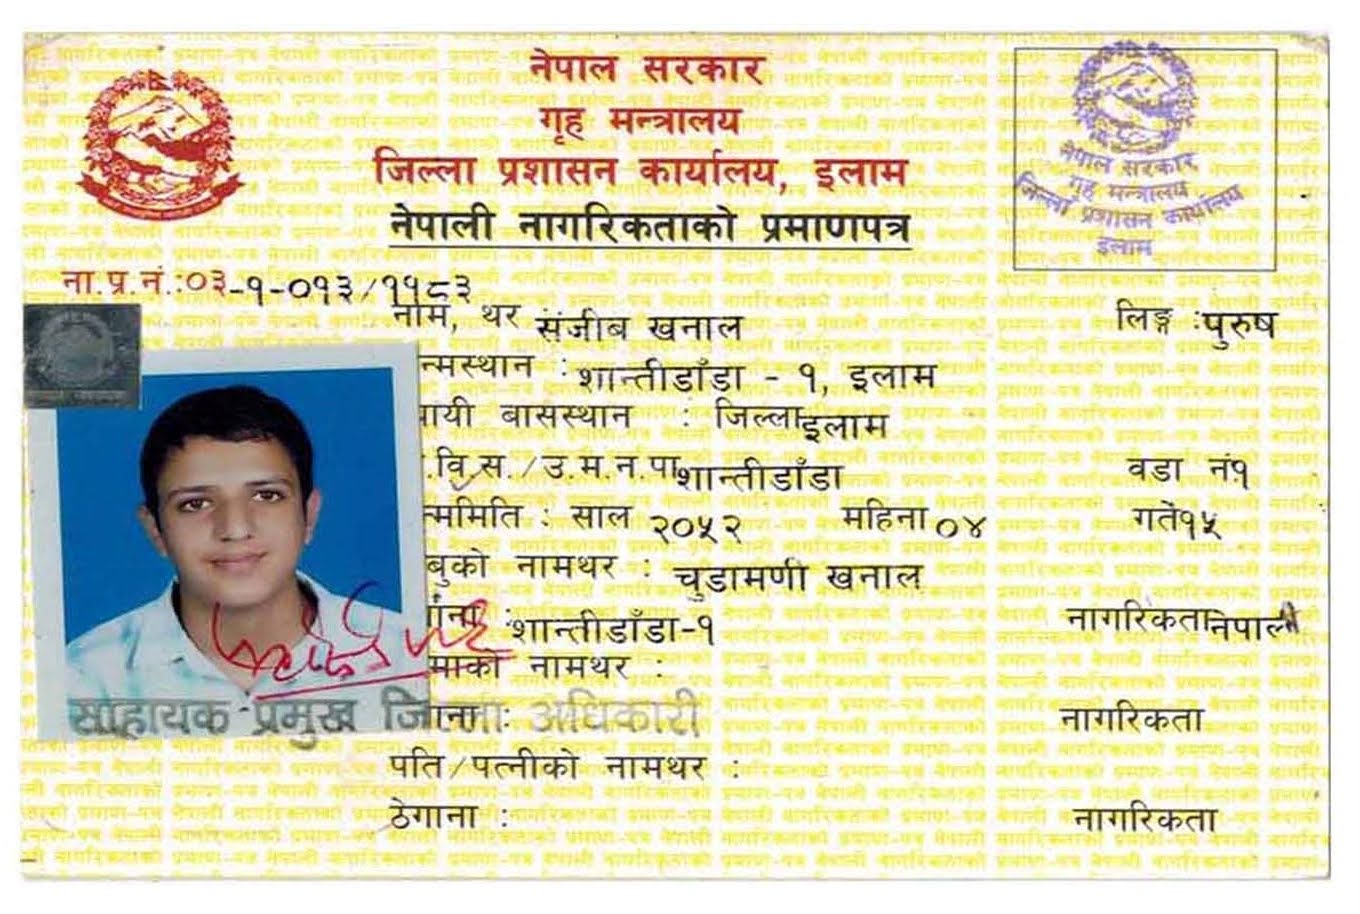 नेपाल सरकार
गृह मन्त्रालय
जिल्ला प्रशासन कार्यालय, इलाम
नेपाली नागरिकताको प्रमाणपत्र
नेपाल सरकार
गृह मन्त्रालय
जिल्ला प्रशासन कार्यालय
इलाम
ना.प्र.नं.:०३-१-०१३/११८३
नाम, थर संजीब खनाल लिङ्ग :पुरुष
न्मस्थान : शान्तीडाँडा - १, इलाम
ायी बासस्थान : जिल्लाइलाम
.वि.स./उ.म.न.पाशान्तीडाँडा वडा नं१
न्ममिति : साल २०५२ महिना०४ गते१५
बुको नामथर : चुडामणी खनाल
गाना :शान्तीडाँडा-१ नागरिकतानेपाली
माको नामथर :
गाना : नागरिकता
सहायक प्रमुख जिल्ला अधिकारी
पति/पत्नीको नामथर :
ठेगाना : नागरिकता